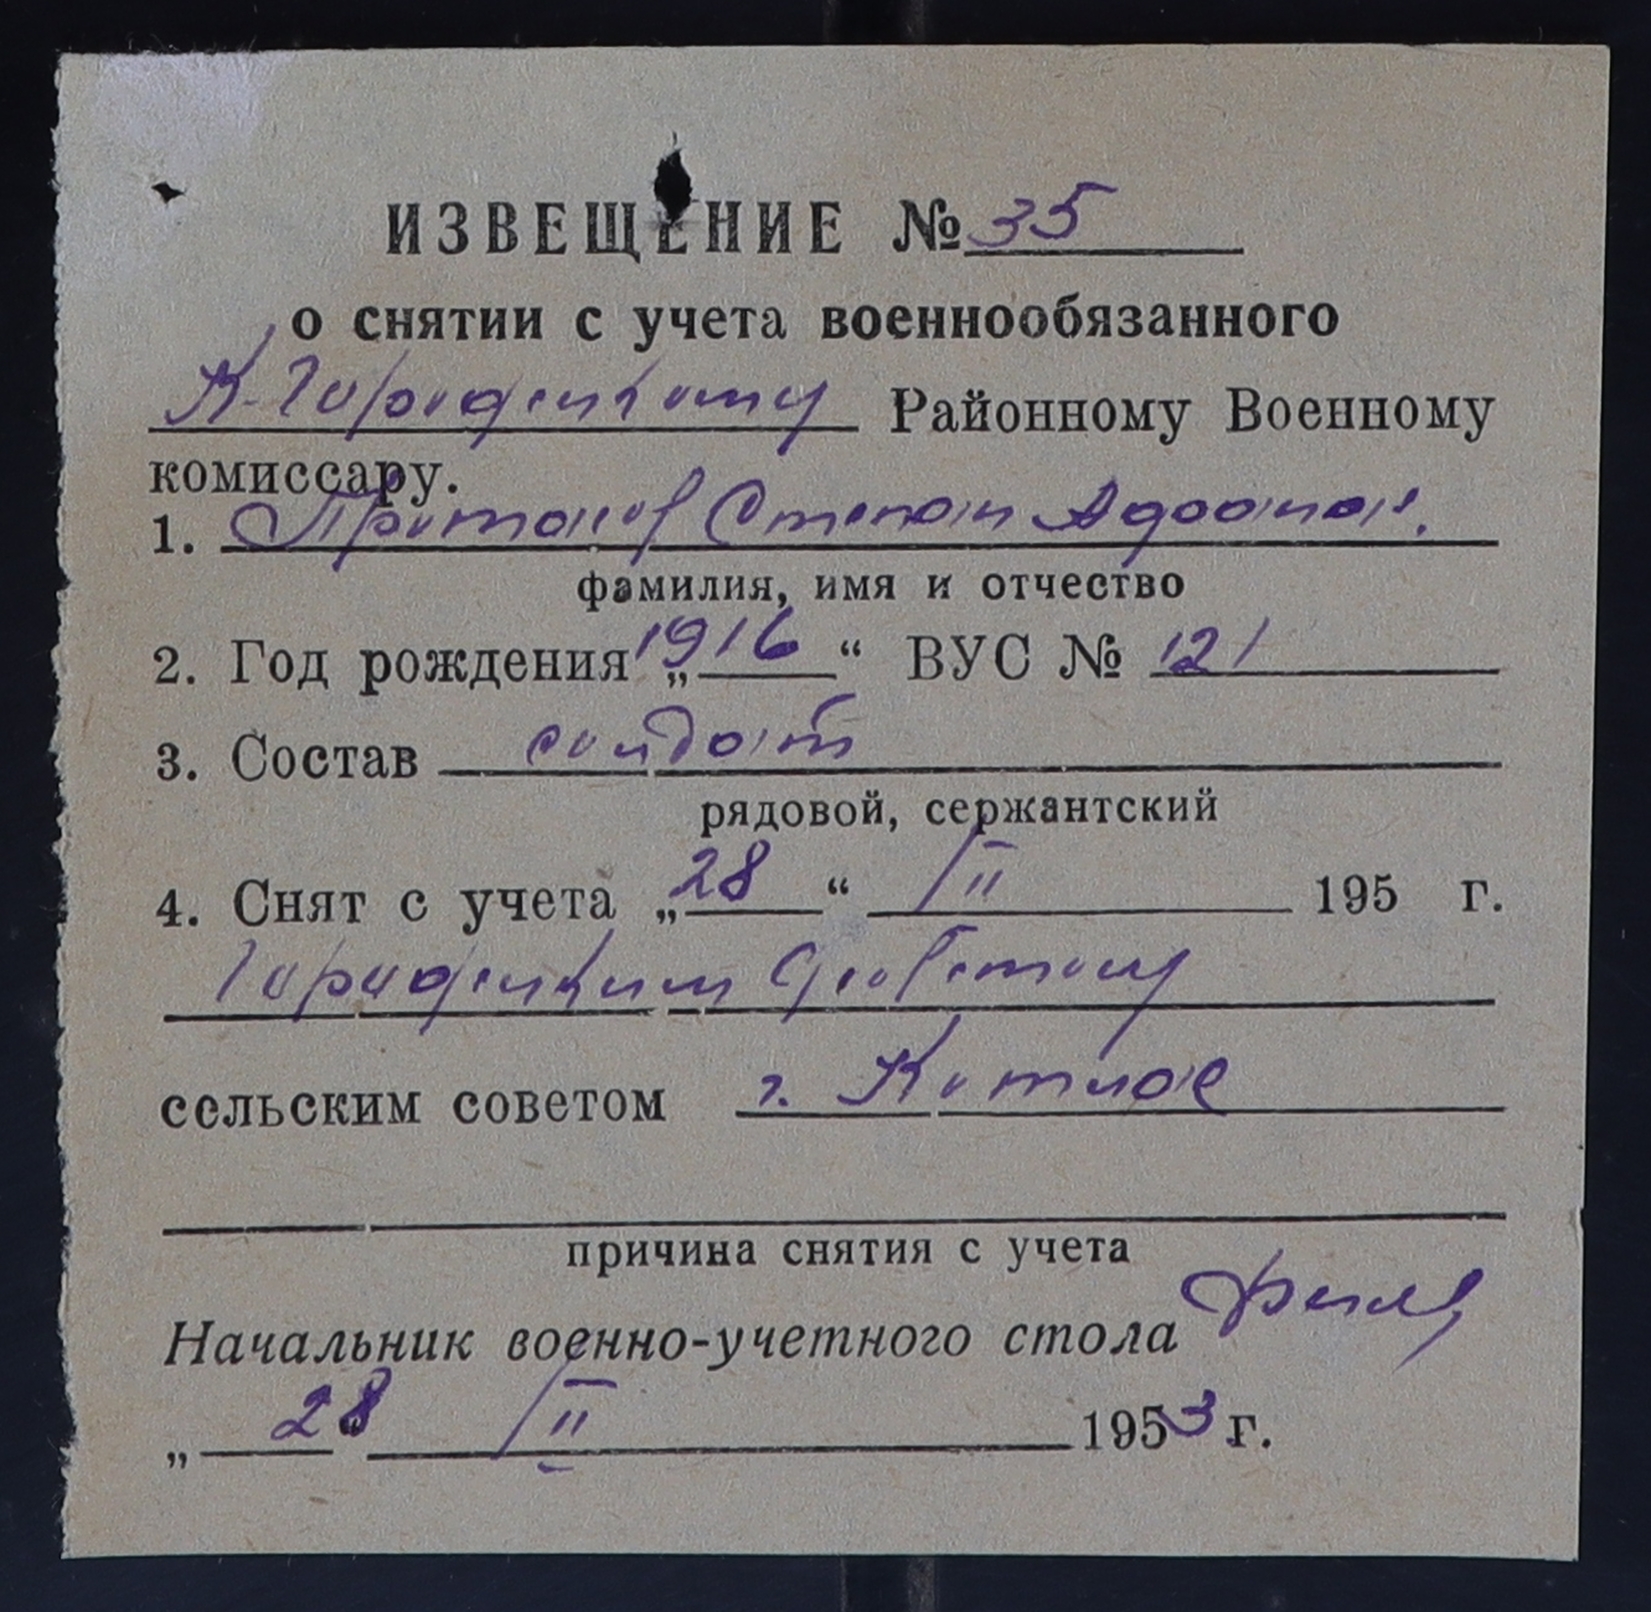 ИЗВЕЩЕНИЕ № 35
о снятии с учета военнообязанного
К-Городецкому Районному Военному
комиссару.
1. Степан
фамилия, имя и отчество
2. Год рождения „1916“ ВУС № 121
3. Состав солдат
рядовой, сержантский
4. Снят с учета „28“ II 195 г.
Городецким
сельским советом г. Котлас
причина снятия с учета
Начальник военно-учетного стола
„28 II 1953 г.